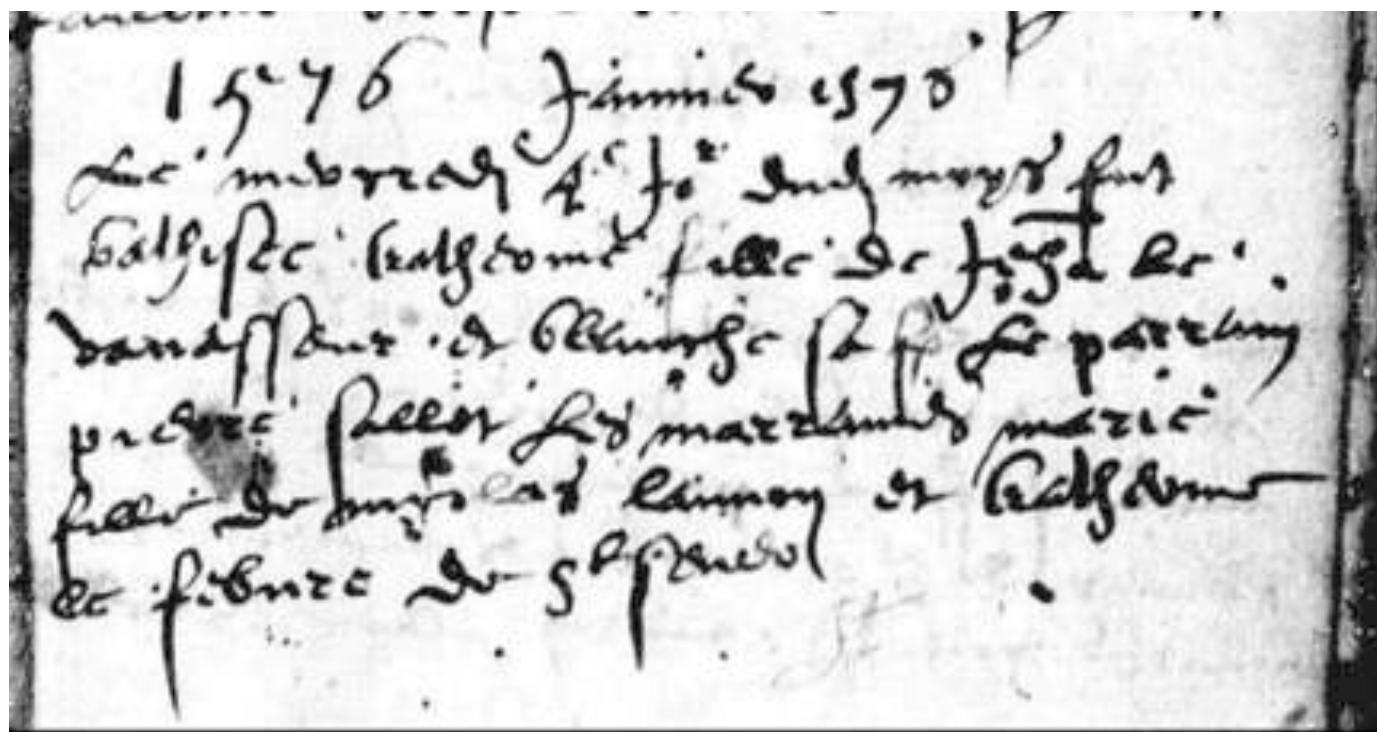 1576 Januier 1576
Le mercredj 4e Jor dudj moys fut
bathisee katherine fille de Jehã le
vauasseur et blanche sa f Le parrain
pierre sallot Les marraines marie
fille de nicolas et katherine
le febure de St